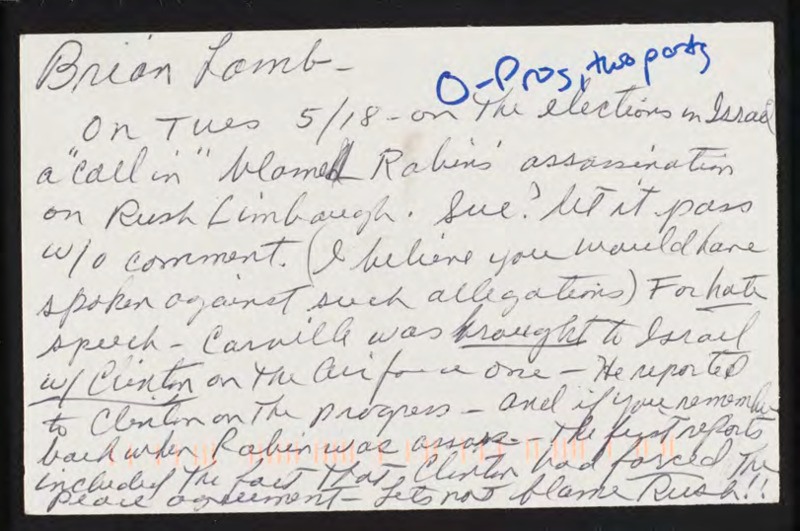 Brian Lamb-
O-Pros, two party
On Tues 5/18 - on the elections in Israel
a "call in" blamed Rabins' assassination
on Rush Limbaugh. Sue? let it pass
w/o comment. (I believe you would have
spoken against such allegations) For hate
speech - Carville was brought to Israel
w/ Clinton on the Airforce one - He reported
to Clinton on the progress - and if you remember
back when Rabin was assas- - the first reports
included the fact that Clinton had forced the
peace agreement - Lets not blame Rush!!